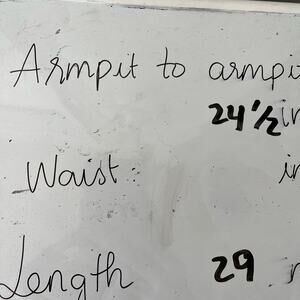 Armpit to armpi
24 1/2 in
Waist : in
Length 29